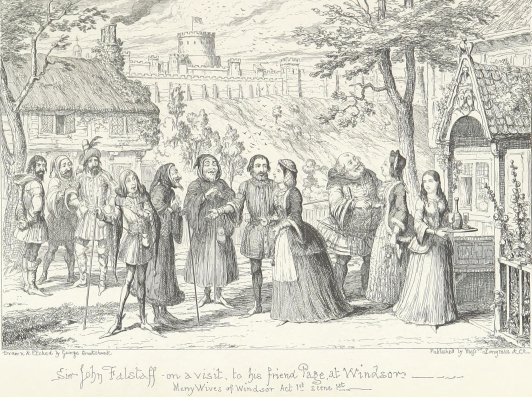 Drawn & Etched by George Cruikshank
Published by Messrs Longman & Co.
Sir John Falstaff on a visit, to his friend Page, at Windsor
Merry Wives of Windsor Act 1st Scene 1st